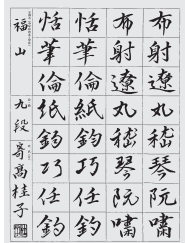 布射遼丸嵇琴阮嘯
布射遼丸嵇琴阮嘯
恬筆倫紙鈞巧任釣
恬筆倫紙鈞巧任釣
福山 九段 高桂子